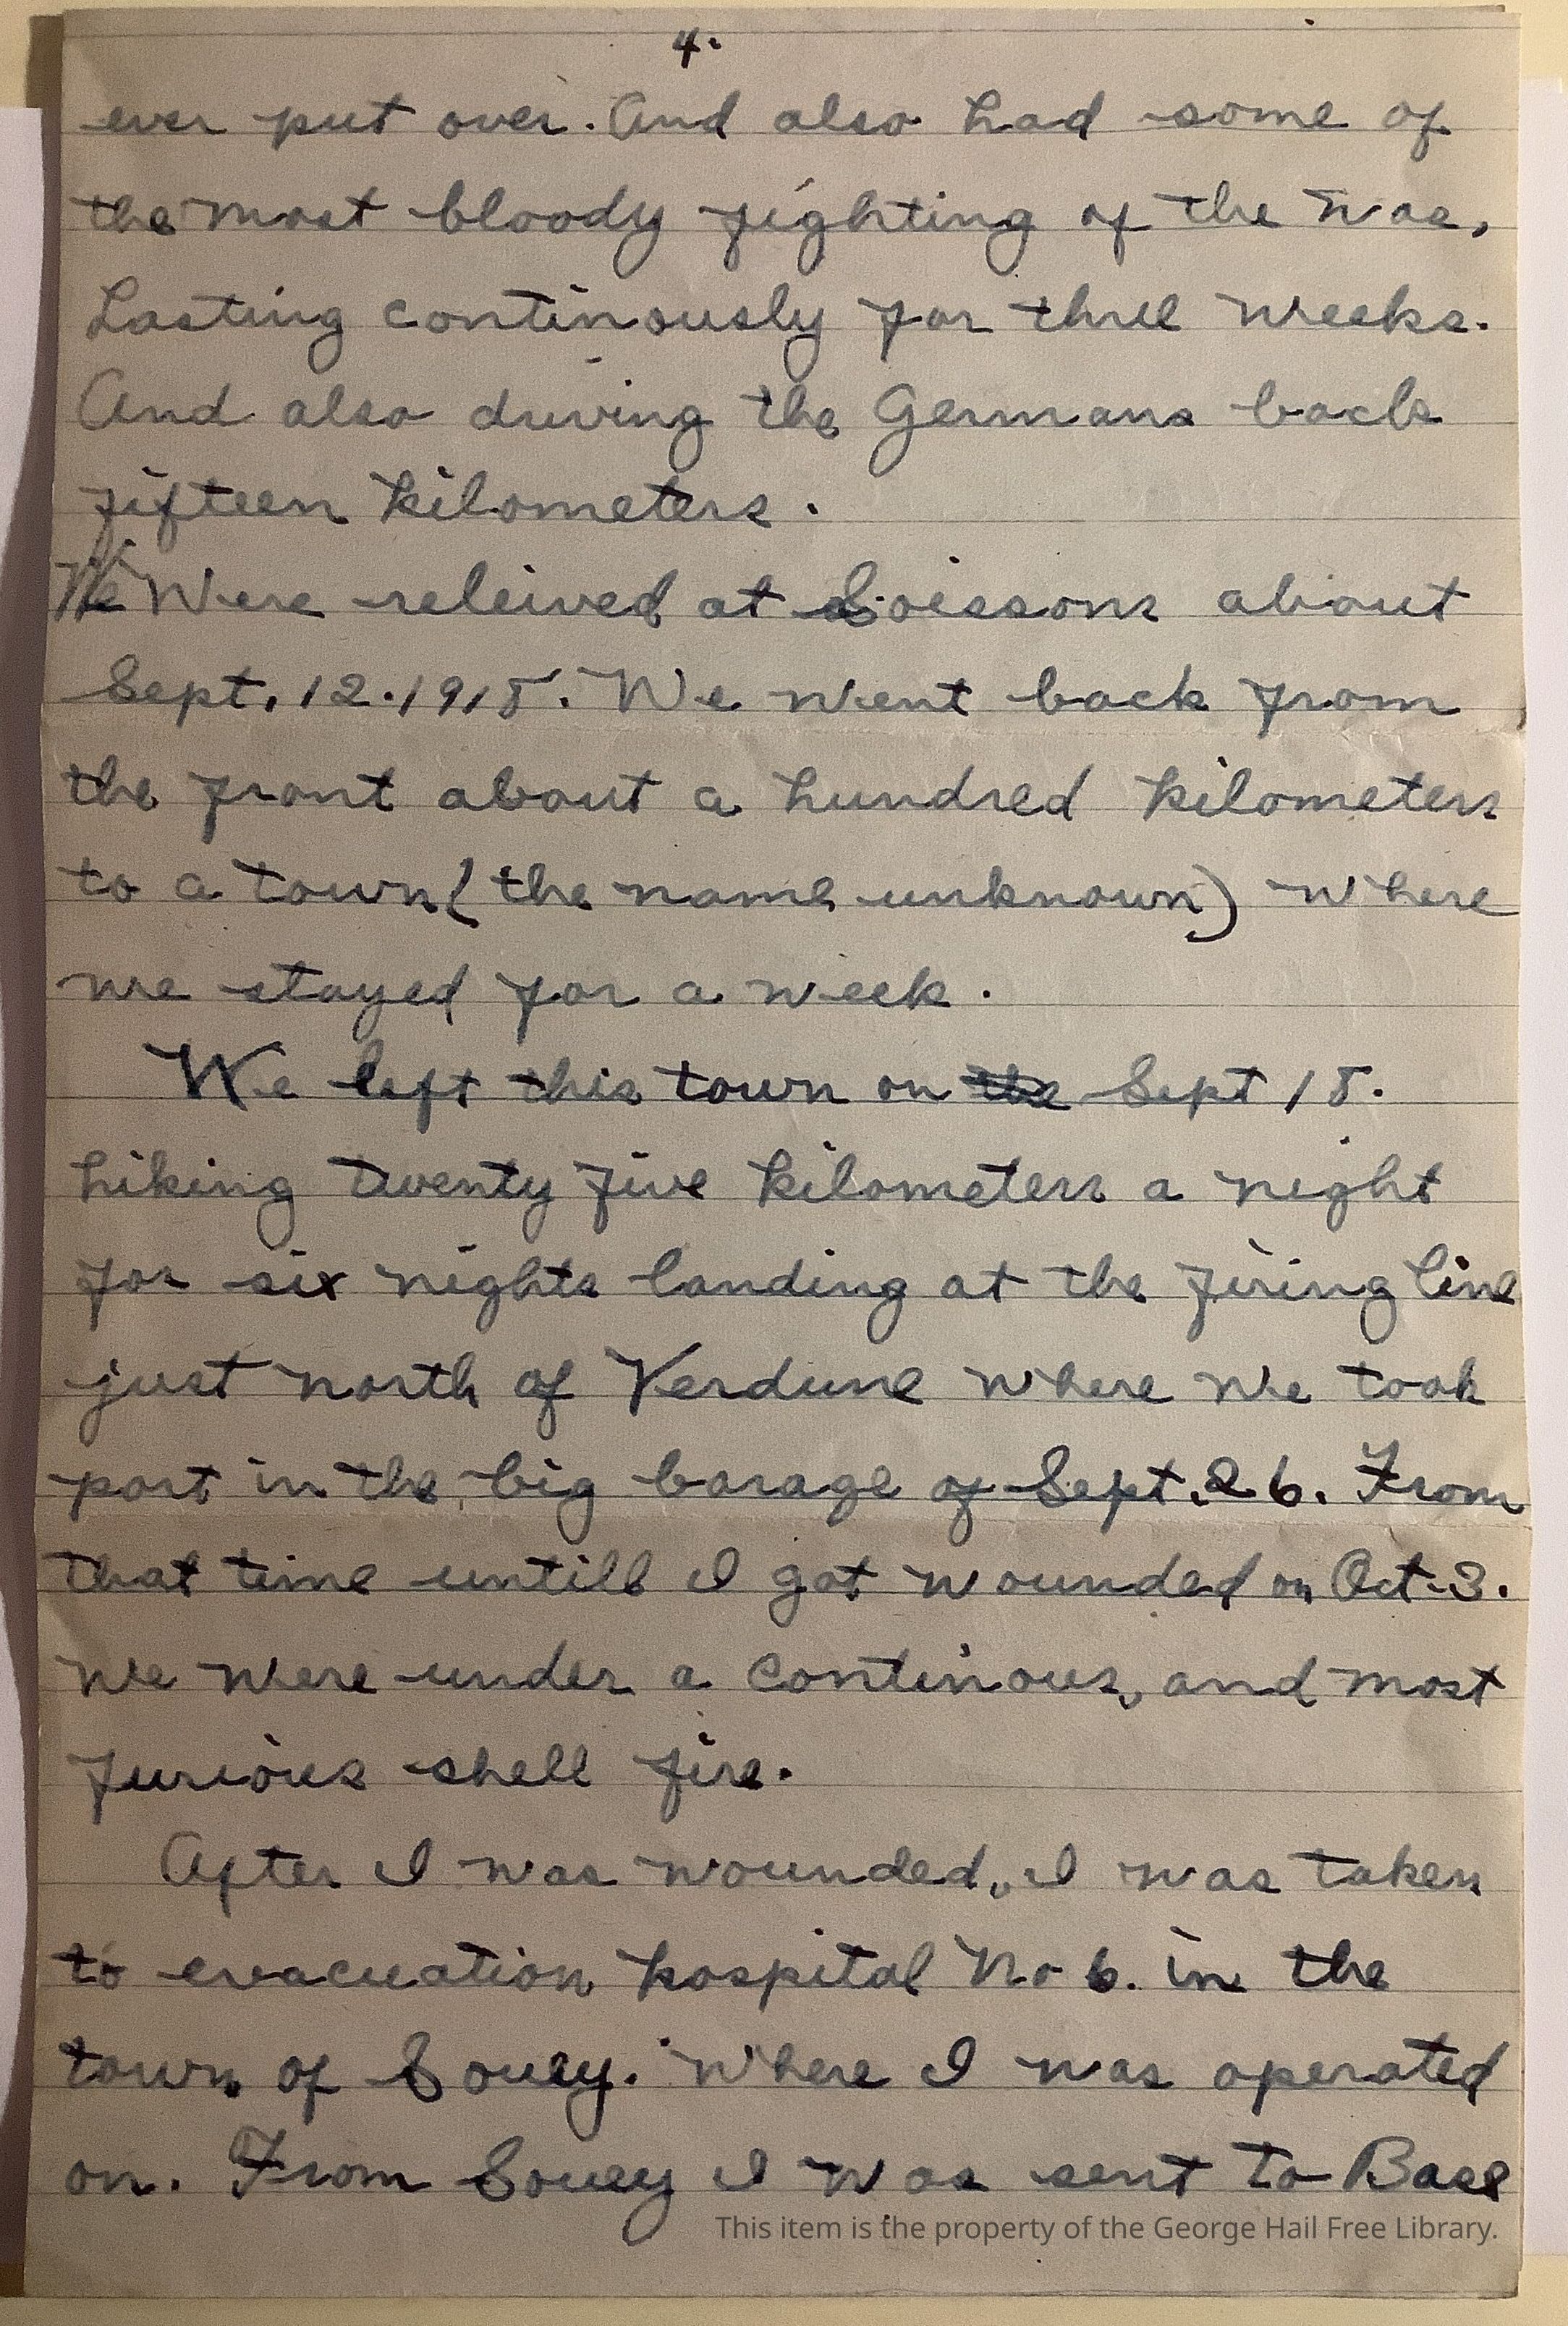 4.
ever put over. And also had some of
the most bloody fighting of the war,
Lasting continously for three weeks.
And also driving the Germans back
fifteen kilometers.
We Were releived at Soissons about
Sept. 12. 1918. We went back from
the front about a hundred kilometers
to a town (the name unknown) where
we stayed for a week.
We left this town on the Sept 18.
hiking twenty five kilometers a night
for six nights landing at the firing line
just north of Verdune where we took
part in the big barage of Sept. 26. From
that time untill I got wounded on Oct-3.
we were under a continous, and most
furious shell fire.
After I was wounded, I was taken
to evacuation hospital No 6. in the
town of Souey. Where I was operated
on. From Souey I was sent to Base
This item is the property of the George Hail Free Library.